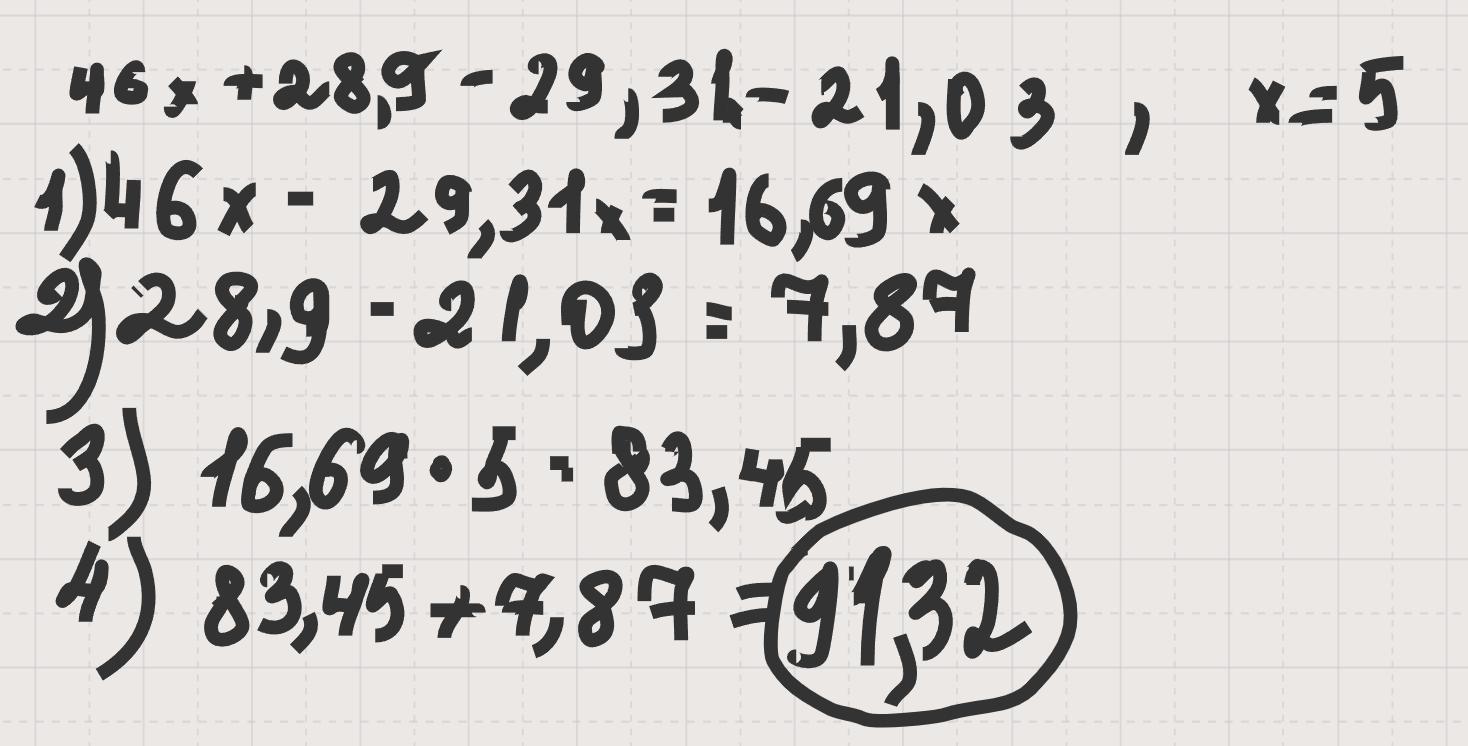 46x + 28,9 - 29,31 - 21,03 , x = 5
1) 46x - 29,31x = 16,69x
2) 28,9 - 21,03 = 7,87
3) 16,69 · 5 = 83,45
4) 83,45 + 7,87 = 91,32